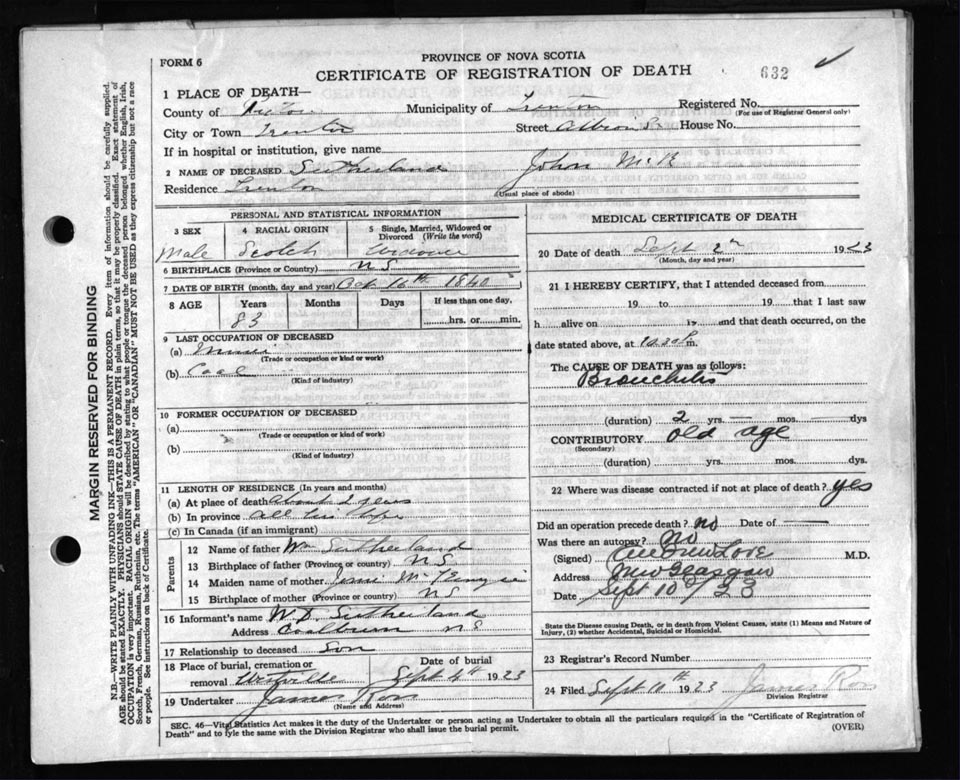 FORM 6
PROVINCE OF NOVA SCOTIA
CERTIFICATE OF REGISTRATION OF DEATH
632
1 PLACE OF DEATH—
County of Pictou Municipality of Trenton Registered No.
(For use of Registrar General only)
City or Town Trenton Street Albion St House No.
If in hospital or institution, give name
2 NAME OF DECEASED Sutherland John McK
Residence Trenton
(Usual place of abode)
PERSONAL AND STATISTICAL INFORMATION
3 SEX 4 RACIAL ORIGIN 5 Single, Married, Widowed or Divorced (Write the word)
Male Scotch Widower
6 BIRTHPLACE (Province or Country) N S
7 DATE OF BIRTH (month, day and year) Oct 16th 1840
8 AGE Years Months Days If less than one day,
83 hrs. or min.
9 LAST OCCUPATION OF DECEASED
(a) Miner
(Trade or occupation or kind or work)
(b) Coal
(Kind of industry)
10 FORMER OCCUPATION OF DECEASED
(a)
(Trade or occupation or kind of work)
(b)
(Kind of industry)
11 LENGTH OF RESIDENCE (In years and months)
(a) At place of death About 2 years
(b) In province all his life
(c) In Canada (if an immigrant)
Parents
12 Name of father Wm Sutherland
13 Birthplace of father (Province or country) N S
14 Maiden name of mother
15 Birthplace of mother (Province or country) N S
16 Informant's name W. D. Sutherland
Address Coalburn N S
17 Relationship to deceased Son
18 Place of burial, cremation or removal Westville Date of burial Sept 4th 1923
19 Undertaker James Ross
(Name and Address)
MEDICAL CERTIFICATE OF DEATH
20 Date of death Sept 2nd 1923
(Month, day and year)
21 I HEREBY CERTIFY, that I attended deceased from
19 to 19 that I last saw
h alive on 19 and that death occurred, on the
date stated above, at m.
The CAUSE OF DEATH was as follows:
Bronchitis
(duration) 2 yrs. — mos. dys
CONTRIBUTORY old age
(Secondary)
(duration) yrs. mos. dys.
22 Where was disease contracted if not at place of death? yes
Did an operation precede death? no Date of —
Was there an autopsy? No
(Signed) Andrew Love M.D.
Address New Glasgow
Date Sept 10/23
State the Disease causing Death, or in death from Violent Causes, state (1) Means and Nature of
Injury, (2) whether Accidental, Suicidal or Homicidal.
23 Registrar's Record Number
24 Filed Sept 11th 1923 James Ross
Division Registrar
SEC. 46—Vital Statistics Act makes it the duty of the Undertaker or person acting as Undertaker to obtain all the particulars required in the "Certificate of Registration of
Death" and to fyle the same with the Division Registrar who shall issue the burial permit.
(OVER)
MARGIN RESERVED FOR BINDING
N.B.—WRITE PLAINLY WITH UNFADING INK—THIS IS A PERMANENT RECORD. Every item of information should be carefully supplied.
AGE should be stated EXACTLY. PHYSICIANS should STATE CAUSE OF DEATH in plain terms, so that it may be properly classified. Exact statement of
OCCUPATION is very important. RACIAL ORIGIN will be described by stating to what people or tongue the deceased person belonged whether English, Irish,
Scotch, French, German, Russian, Ruthenian, etc. The terms "AMERICAN" OR "CANADIAN" MUST NOT BE USED as they express citizenship but not a race
or people. See instructions on back of Certificate.